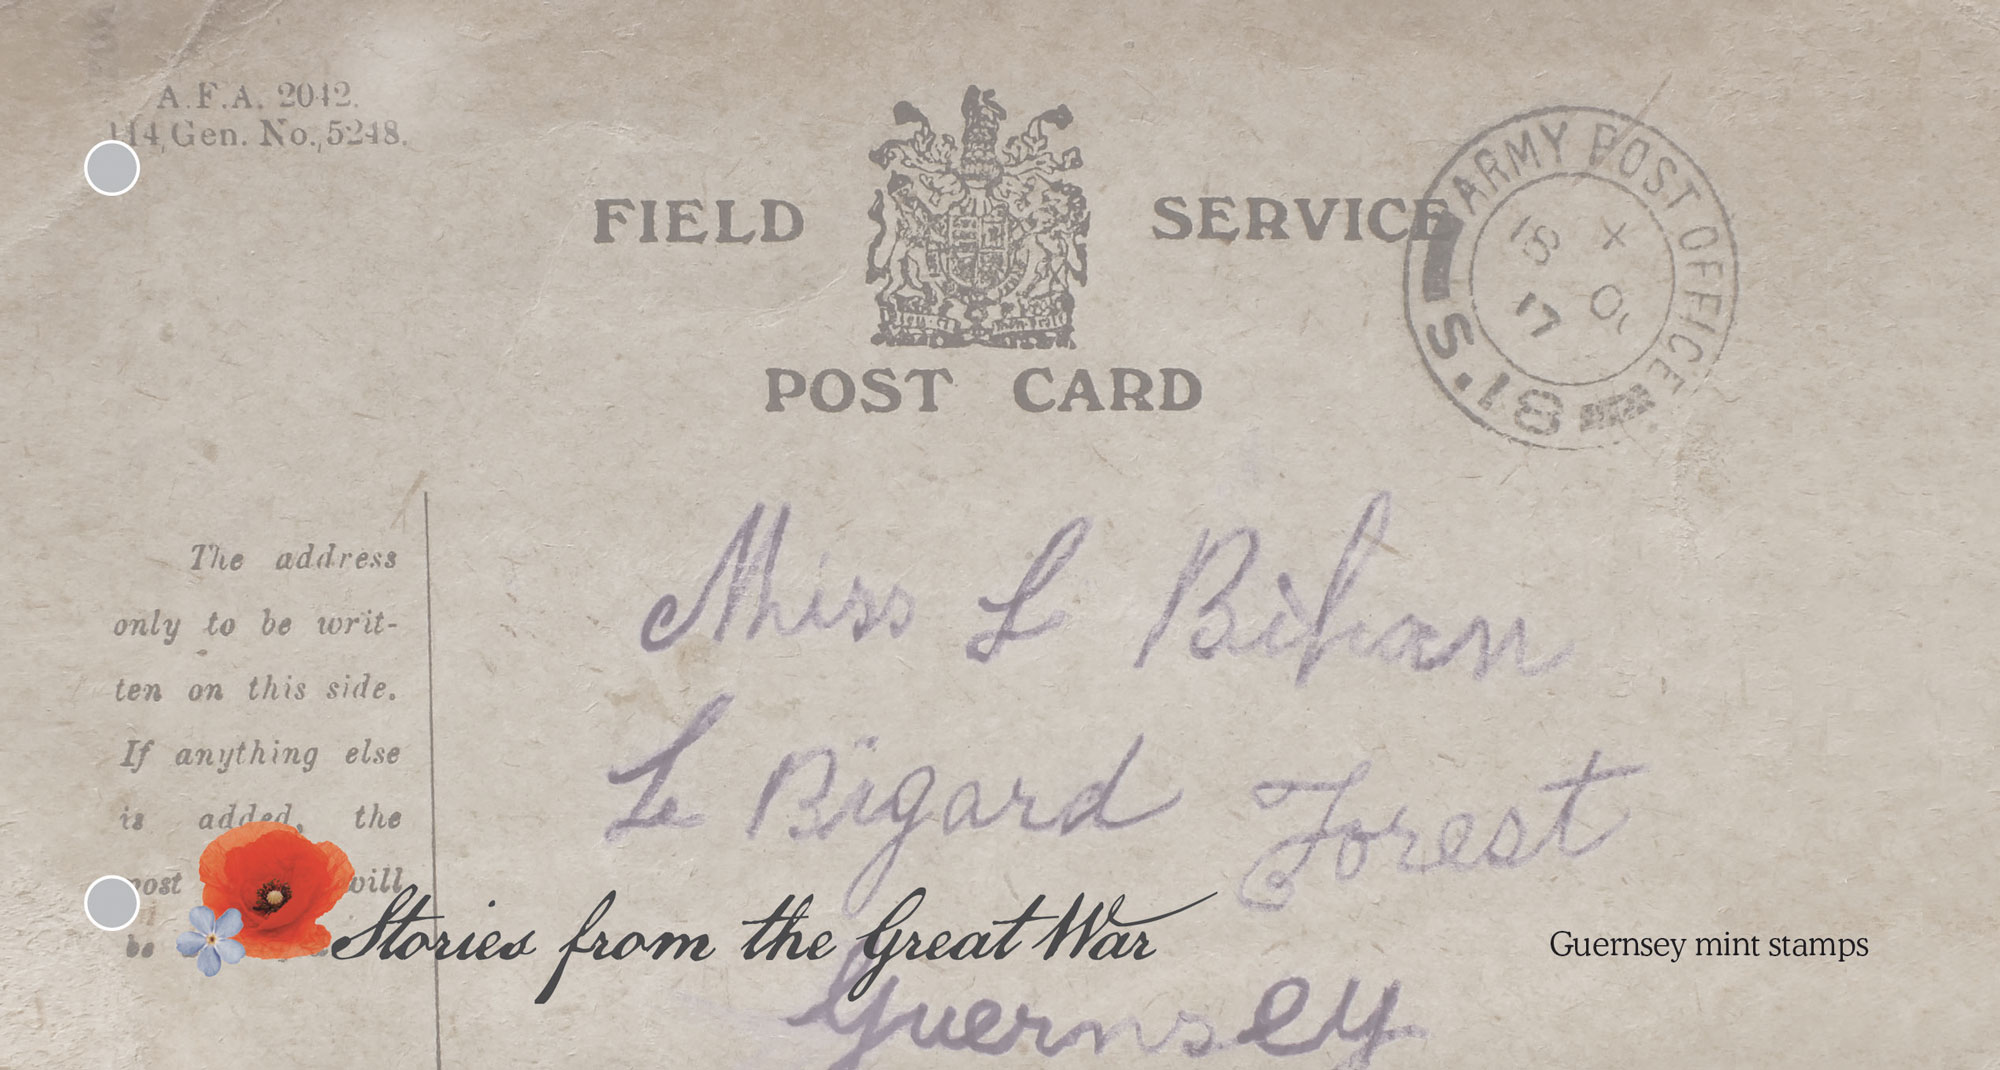 A.F.A. 2042.
114 Gen. No., 5248.
FIELD SERVICE
POST CARD
ARMY POST OFFICE
X
17
S. 18
The address
only to be writ-
ten on this side.
If anything else
is added, the
post will
be
Miss L Bihan
Le Bigard Forest
Guernsey
Stories from the Great War
Guernsey mint stamps